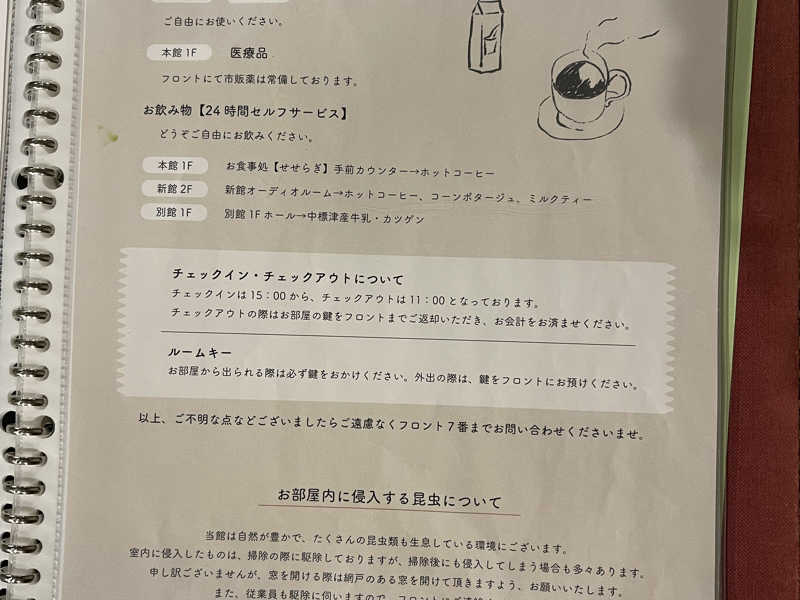 ご自由にお使いください。
本館 1F 医療品
フロントにて市販薬は常備しております。
お飲み物【24 時間セルフサービス】
どうぞご自由にお飲みください。
本館 1F お食事処【せせらぎ】手前カウンター→ホットコーヒー
新館 2F 新館オーディオルーム→ホットコーヒー、コーンポタージュ、ミルクティー
別館 1F 別館 1F ホール→中標津産牛乳・カツゲン
チェックイン・チェックアウトについて
チェックインは 15:00 から、チェックアウトは 11:00 となっております。
チェックアウトの際はお部屋の鍵をフロントまでご返却いただき、お会計をお済ませください。
ルームキー
お部屋から出られる際は必ず鍵をおかけください。外出の際は、鍵をフロントにお預けください。
以上、ご不明な点などございましたらご遠慮なくフロント 7 番までお問い合わせくださいませ。
お部屋内に侵入する昆虫について
当館は自然が豊かで、たくさんの昆虫類も生息している環境にございます。
室内に侵入したものは、掃除の際に駆除しておりますが、掃除後にも侵入してしまう場合も多々あります。
申し訳ございませんが、窓を開ける際は網戸のある窓を開けて頂きますよう、お願いいたします。
また、従業員も駆除に伺いますので、フロントに